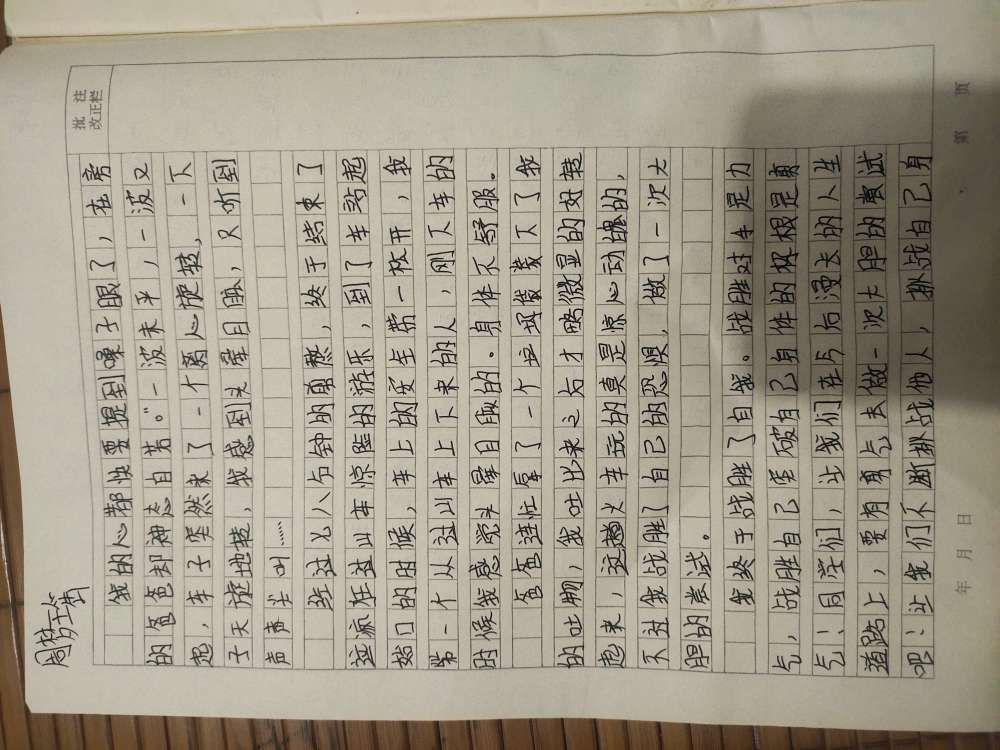 批注
改正栏
我的心都快要提到嗓子眼了,在旁
的爸爸却神态自若。"一波未平,一波又
起,车子突然来了一个离心旋转,一下
子天旋地转,我感到头晕目眩,只听到
声声尖叫……
经过七八分钟的煎熬,终于结束了
这疯狂过山车惊险的游乐,到了车站起
始口的时候,车上的安全带一松开,我
第一个从过山车上下来的人,刚下车的
时候我感觉头晕目眩的。身体不舒服。
爸爸连忙拿了一个垃圾袋装下了我
的吐物,我吐出来之后才略微显的好转
起来,这趟火车玩的真是惊心动魄的,
不过我战胜了自己的恐惧,做了一次大
胆的尝试。
我终于战胜了自我。战胜对手是力
气,战胜自己突破自己身体的极根是勇
气;同学们,让我们在今后漫长的人生
道路上,要有勇气去做一次大胆的尝试
吧;让我们不断挑战他人,挑战自己身
年 月 日
第 页